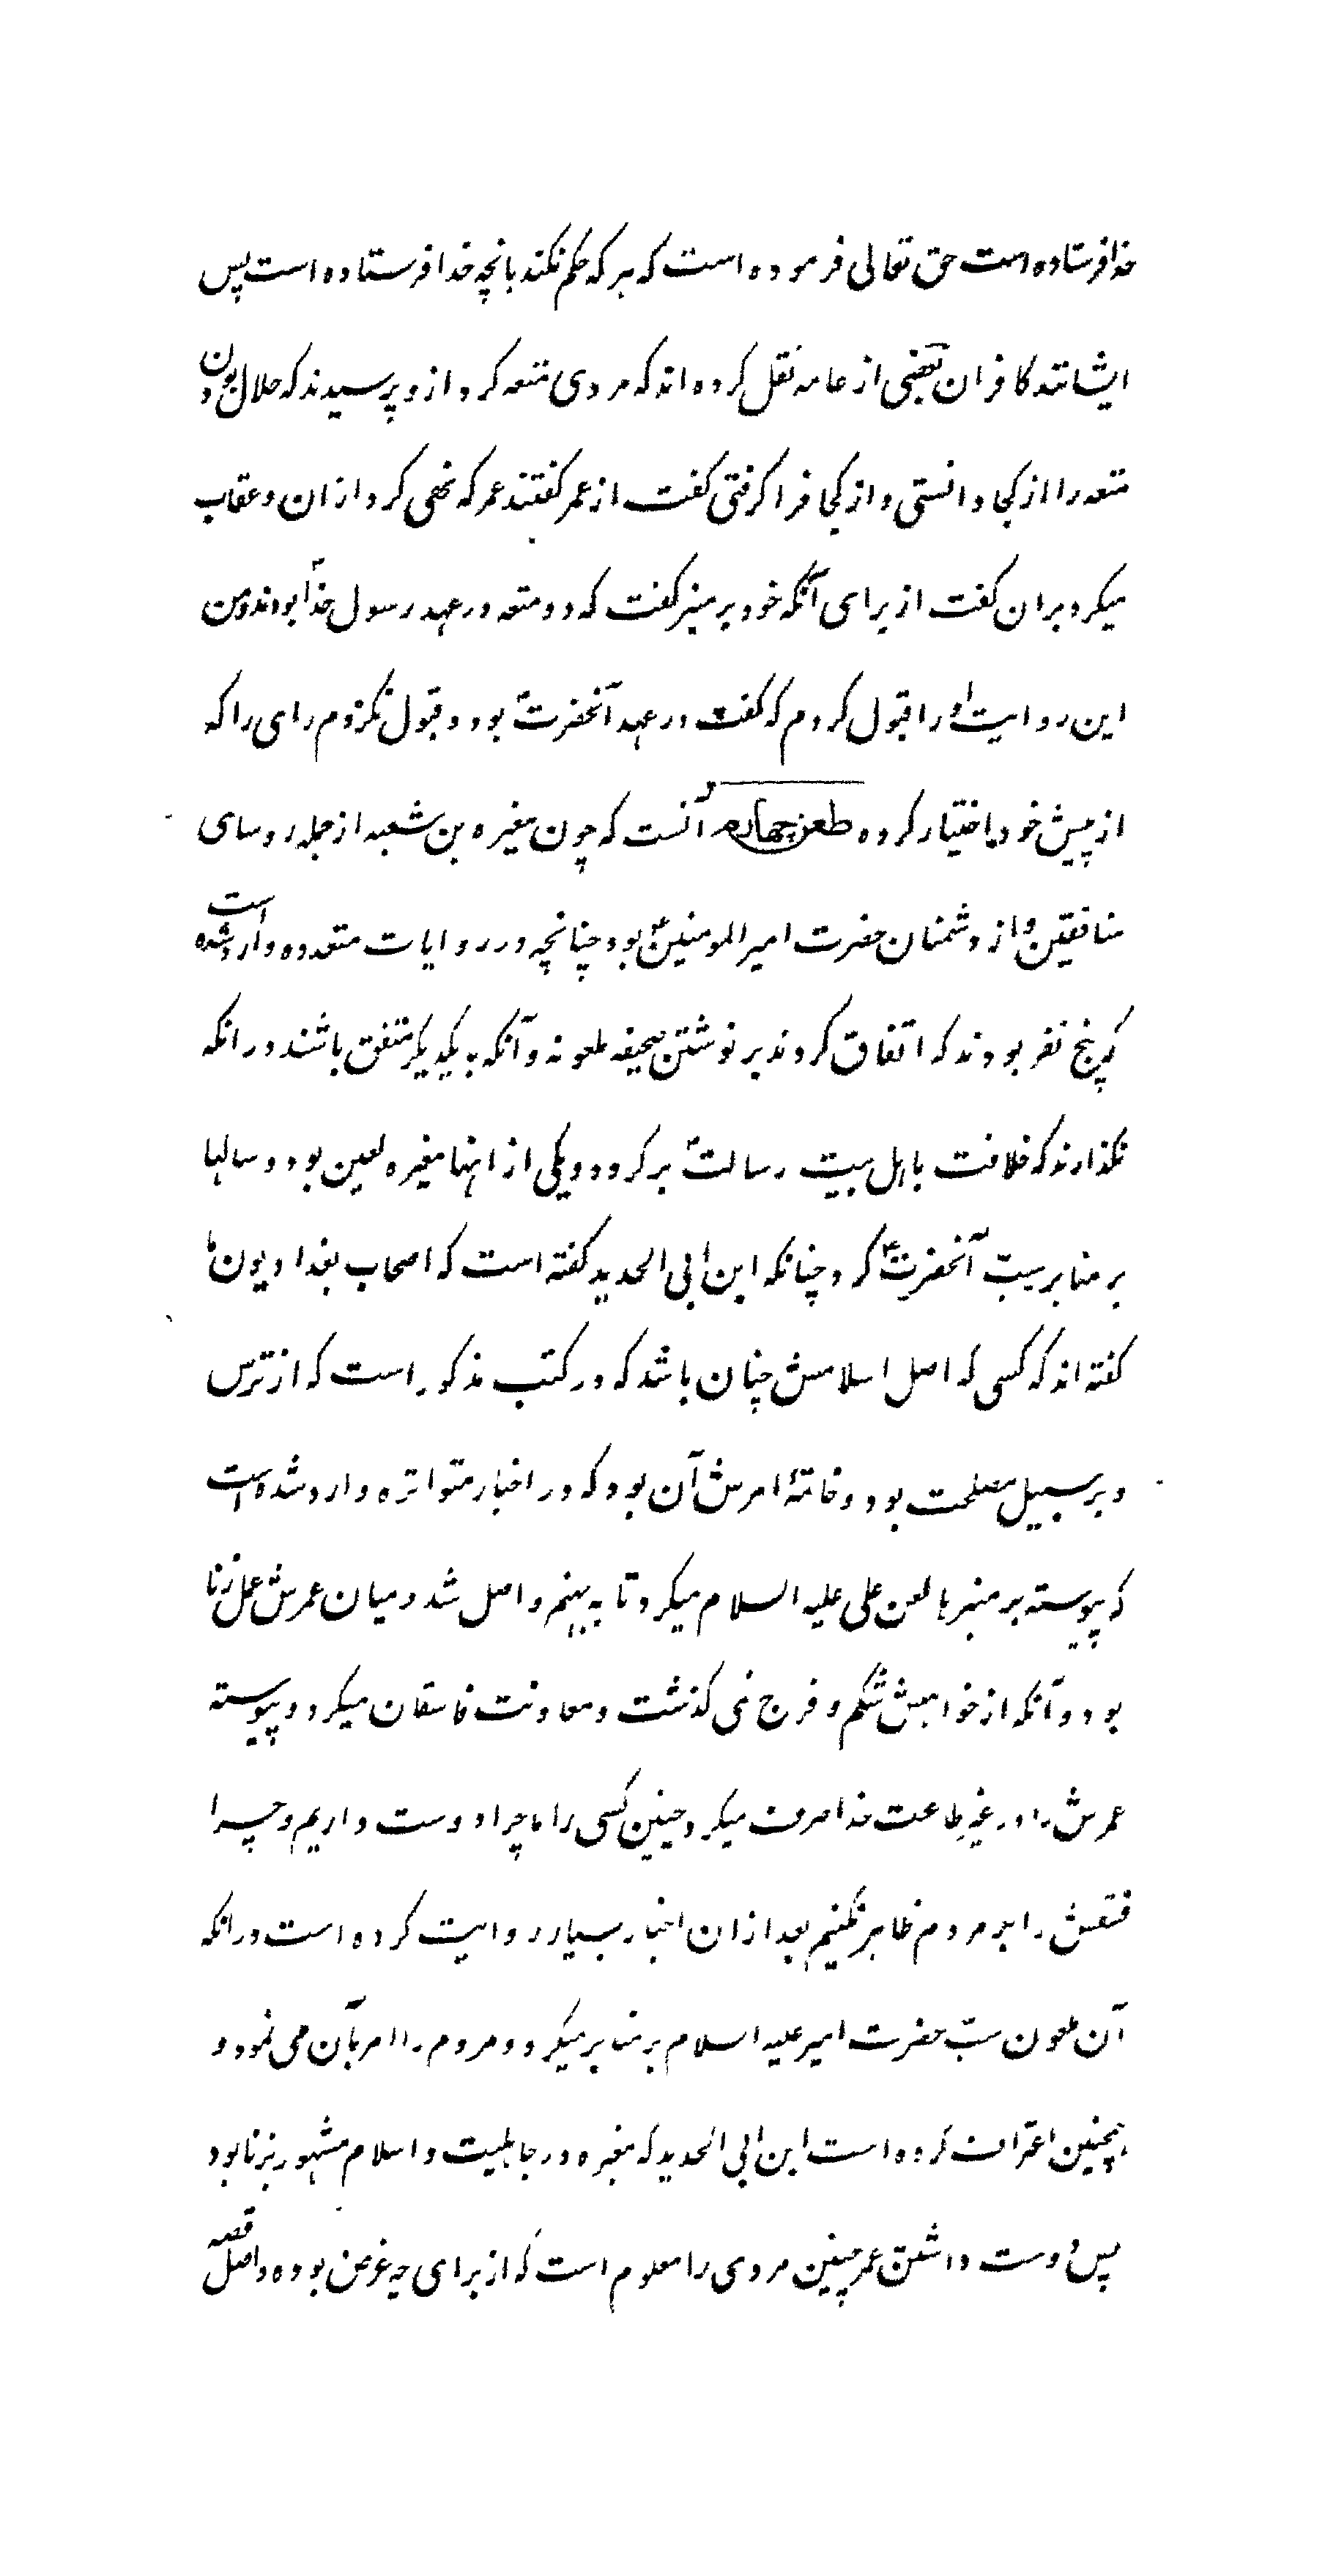 خدا فرستاده است حق تعالی فرموده است که هر که حکم نکند بانچه خدا فرستاده است پس
ایشانند کافران بعضی از عامه نقل کرده اند که مردی متعه کرد ازو پرسیدند که حلال بودن
متعه را از کجا دانستی و از کجا فرا گرفتی گفت از عمر گفتند عمر که نهی کرد ازان و عقاب
میکرد بران گفت از برای آنکه خود بر منبر گفت که دو متعه در عهد رسول خدا بودند و من
این روایت او را قبول کردم که گفت در عهد آنحضرت بود و قبول نکردم رای را که
از پیش خود اختیار کرده طعن چهارم آنست که چون مغیره بن شعبه از جمله روسای
منافقین و از دشمنان حضرت امیر المومنینؑ بود چنانچه در روایات متعدده وارد شده است
که پنج نفر بودند که اتفاق کردند بر نوشتن صحیفه ملعونه و آنکه به یکدیگر متفق باشند در انکه
نگذارند که خلافت باهل بیت رسالت برگردد و یکی از انها مغیره لعین بود و سالها
بر منابر سبّ آنحضرتؑ کرد چنانکه ابن ابی الحدید گفته است که اصحاب بغدادیون ما
گفته اند که کسی که اصل اسلامش چنان باشد که در کتب مذکور است که از ترس
و بر سبیل مصلحت بود و خاتمهٔ امرش آن بود که در اخبار متواتره وارد شده است
که پیوسته بر منبرها لعن علی علیه السلام میکرد تا به جهنم واصل شد و میان عمرش عمل زنا
بود و آنکه از خواهش شکم و فرج نمی گذشت و معاونت فاسقان میکرد و پیوسته
عمرش را در غیر طاعت خدا صرف میکرد چنین کسی را ما چرا دوست داریم و چرا
فسقش را بر مردم ظاهر نکنیم بعد ازان اخبار بسیار روایت کرده است در انکه
آن ملعون سبّ حضرت امیر علیه السلام بر منابر میکرد و مردم را امر بآن می نمود و
همچنین اعتراف کرده است ابن ابی الحدید که مغیره در جاهلیت و اسلام مشهور بزنا بود
پس دوست داشتن عمر چنین مردی را معلوم است که از برای چه غرض بوده و اصل قصه